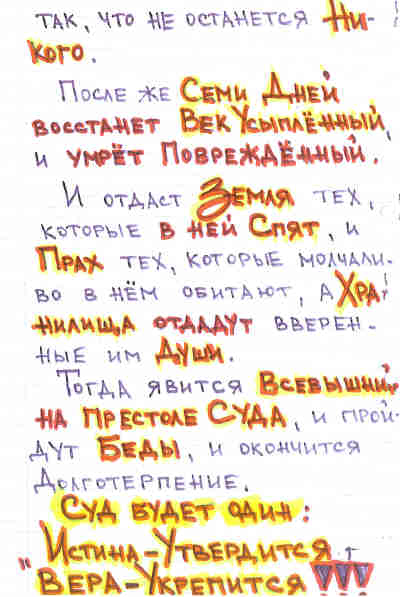 так, что не останется Ни-
кого.
После же Семи Дней
восстанет Век Усыплённый,
и умрёт Повреждённый.
И отдаст Земля тех,
которые в ней Спят, и
Прах тех, которые молчали-
во в нём обитают, а Хра-
нилища отдадут вверен-
ные им Души.
Тогда явится Всевышний
на престоле Суда, и прой-
дут Беды, и окончится
Долготерпение.
Суд будет один:
Истина-Утвердится,
"Вера-Укрепится!!!